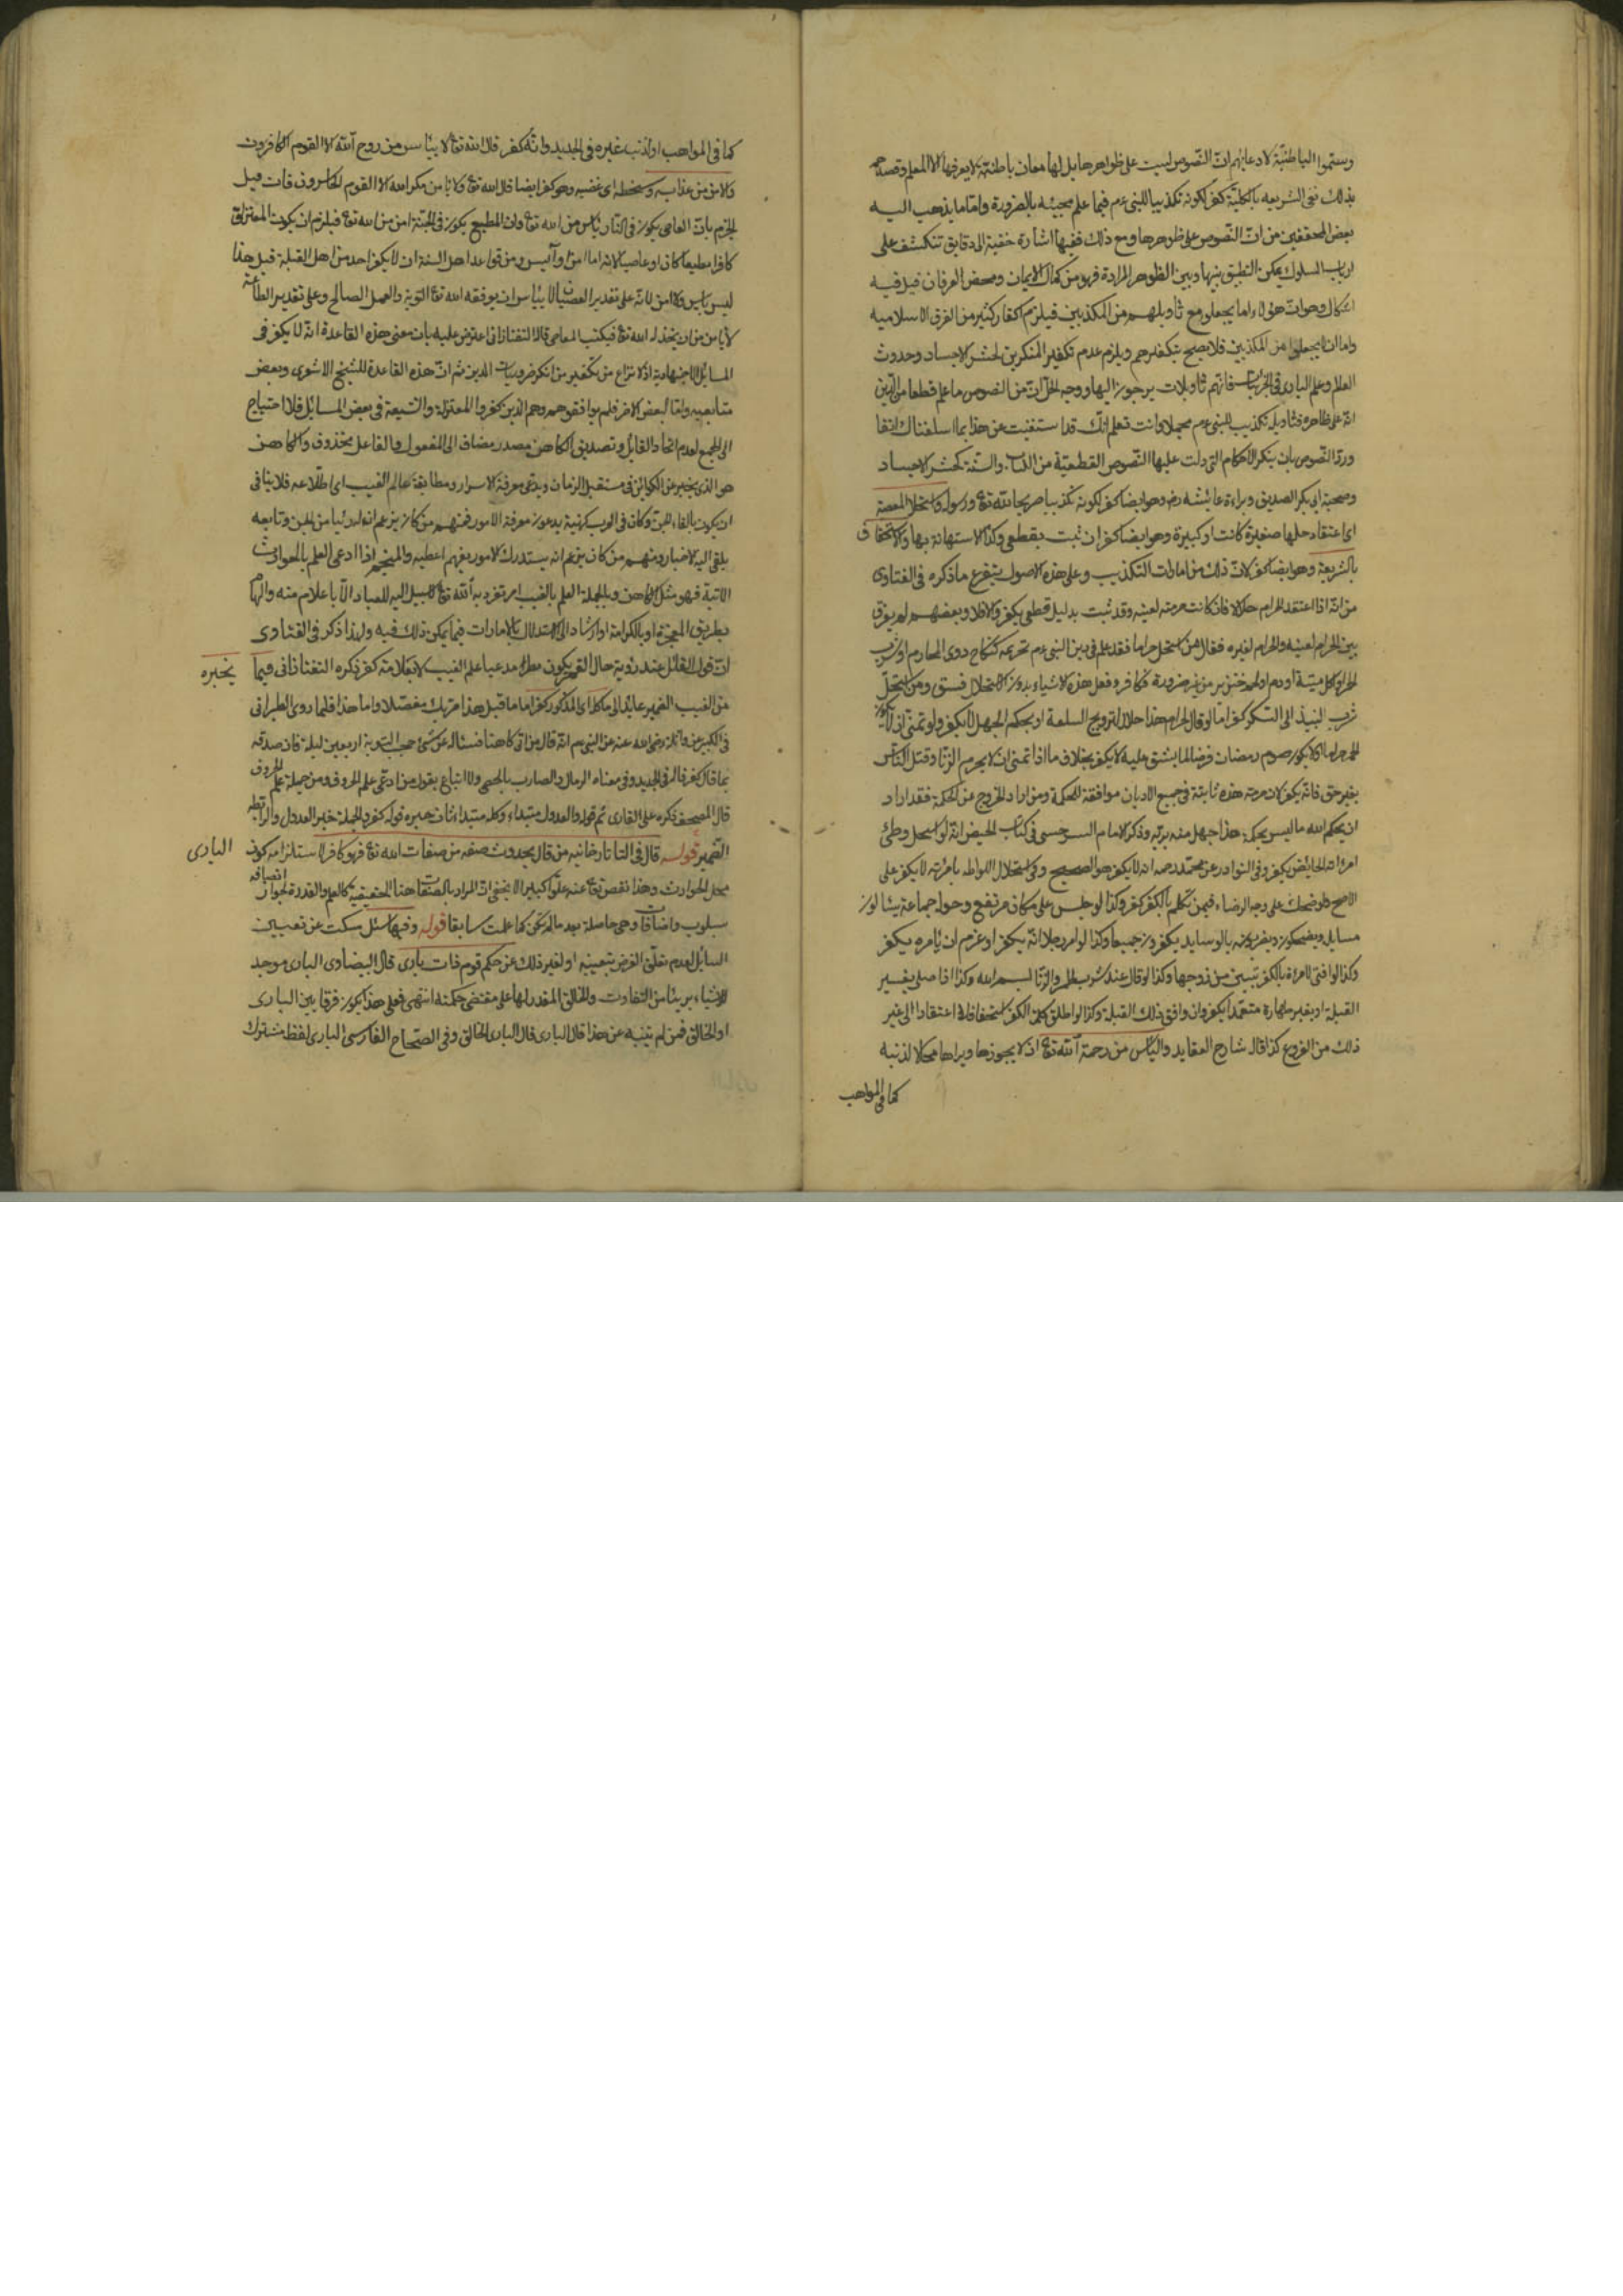 وسمّوا الباطنيّة لادعائهم انّ النّصوص ليست على ظواهرها بل لها معان باطنيّة لا يعرفها الا المعلم وقصدهم
بذلك نفى الشريعه بالكليّة كفر لكونه تكذيبا للنبى ءم فيما علم مجيئه بالضرورة وامّا ما يذهب اليه
بعض المحققين من انّ النّصوص على ظواهرها ومع ذلك ففيها اشارة خفية الى دقايق تنكشف على
ارباب السلوك يمكن التطبيق بينها وبين الظواهر المرادة فهو من كمال الايمان ومحض العرفان قيل فيه
اشكال وهو انّ هؤلاء اما يجعلون مع تأويلهم من المكذبين فيلزم اكفار كثير من الفرق الاسلاميه
واما ان لا يجعلوا من المكذبين فلا يصح تكفيرهم ويلزم عدم تكفير المنكرين لحشر الاجساد وحدوث
العالم وعلم البارى فى الجزئيات فانّهم تأويلات يرجعون اليها ووجه الحلّ انّ من النصوص ما علم قطعا من الدّين
انّه على ظاهره فتأويله تكذيب للنبى ءم مجملا وانت تعلم انّك قد استغنيت عن هذا بما اسلفناك انفا
وردّ النّصوص بان ينكر الاحكام التى دلت عليها النّصوص القطعيّة من الكتاب والسّنة كحشر الاجساد
وصحبة ابى بكر الصديق وبراءة عايشه رض وهو ايضا كفر لكونه تكذيبا صريحا لله تع ورسوله واستحلال المعصية
اى اعتقاد حلها صغيرة كانت او كبيرة وهو ايضا كفر ان ثبت بقطعى وكذا الاستهانة بها والاستخفاف
بالشريعة وهو ايضا كفر لانّ ذلك من امارات التكذيب وعلى هذه الاصول يتفرع ما ذكره فى الفتاوى
من انّه اذا اعتقد الحرام حلالا فان كانت حرمته لعينه وقد ثبت بدليل قطعى يكفر والا فلا وبعضهم لم يفرق
بين الحرام لعينه والحرام لغيره فقال من استحل حراما فقد علم فى دين النبى ءم تحريمه كنكاح ذوى المحارم او شرب
الخمر او اكل ميتة او دم او لحم خنزير من غير ضرورة فكافر وفعل هذه الاشياء بدون الاستحلال فسق ومن استحلّ
شرب النبيذ الى السّكر كفر امّا لو قال لحرام هذا حلال لترويج السلعة او بحكم الجهل لا يكفر ولو تمنّى ان لا يكون
الخمر حراما او لا يكون صوم رمضان فرضا لما يشق عليه لا يكفر بخلاف ما اذا تمنى ان لا يحرم الزنا وقتل النّاس
بغير حق فانّه يكفر لان حرمة هذه ثابتة فى جميع الاديان موافقة للحكمة ومن اراد الخروج عن الحكمة فقد اراد
ان يحكم الله ما ليس بحكمة هذا جهل منه بربّه وذكر الامام السرخسى فى كتاب الحيض انّه لو استحل وطئ
امرأته الحائض يكفر وفى النوادر عن محمّد رحمه انه لا يكفر هو الصحيح وفى استحلال اللواطه بامرأته لا يكفر على
الاصح ولو ضحك على وجه الرضاء فيمن تكلم بالكفر كفر وكذا لو جلس على مكان مرتفع وحوله جماعة يسألون
مسايل ويضحكون ويضربونه بالوسايد يكفرون جميعا وكذا لو امر رجلا انّه يكفر او عزم ان يأمره يكفر
وكذا لو افتى لامرأة بالكفر تتبين من زوجها وكذا لو قال عند شرب الخمر والزنا بسم الله وكذا اذا صلى بغير
القبلة او بغير طهارة متعمّدا يكفر وان وافق ذلك القبلة وكذا لو اطلق كلمة الكفر استخفافا لا اعتقادا الى غير
ذلك من الفروع كذا قال شارح العقايد واليأس من رحمة الله تع اذ لا يجوزها ويراها محالا لذنبه
كما فى المواهب
كما فى المواهب او لذنب غيره فى الجديد وانّه كفر قال الله تع لا ييأس من روح الله الا القوم الكافرون
والامن من عذابه وسخطه اى غضبه وهو كفر ايضا قال الله تع ولا يأمن مكر الله الا القوم الخاسرون فان قيل
الجزم بانّ العاصى يكون فى النار يأس من الله تع وان المطيع يكون فى الجنة امن من الله تع فيلزم ان يكون المعتزلى
كافرا مطيعا كان او عاصيا لانه اما امن او آيس ومن قواعد اهل السنة ان لا يكفر احد من اهل القبلة قيل هذا
ليس بيأس ولا امن لانّه على تقدير العصيان لا ييأس ان يوفقه الله تع التوبة والعمل الصالح وعلى تقدير الطاعة
لا يأمن من ان يخذله الله تع فيكتسب المعاصى قال التفتازانى اعترض عليه بان معنى هذه القاعدة انّه لا يكفر فى
المسايل الاجتهادية اذ لا نزاع من تكفير من انكر ضروريات الدين ثم انّ هذه القاعدة للشيخ الاشعرى وبعض
متابعيه وامّا البعض الاخر فلم يوافقوهم وهم الذين كفروا المعتزلة والشيعة فى بعض المسايل فلا احتياج
الى الجمع لعدم اتحاد القايل وتصديق الكاهن مصدر مضاف الى المفعول والفاعل محذوف والكاهن
هو الذى يخبر عن الكوائن فى مستقبل الزمان ويدّعى معرفة الاسرار ومطابقة عالم الغيب اى اطّلاعه فلا ينافى
ان يكون بالقاء الجنّ وكان فى العرب كهنة يدعون معرفة الامور فمنهم من كان يزعم انه له رئيا من الجن وتابعه
يلقى اليه الاخبار ومنهم من كان يزعم انه يستدرك الامور بفهم اعطيه والمنجم اذا ادعى العلم بالحوادث
الاتية فهو مثل الكاهن وبالجملة العلم بالغيب امر تفرد به الله تع لا سبيل اليه للعباد الّا باعلام منه والهام
بطريق المعجزة او بالكرامة او ارشاد الى الاستدلال بالامارات فيما يمكن ذلك فيه ولهذا ذكر فى الفتاوى
انّ قول القائل عند رؤية حال القمر يكون مطر مدعيا علم الغيب لا بعلامة كفر ذكره التفتازانى فيما يخبره
من الغيب الضمير عائد الى ما كل اى المذكور كفر اما ما قبل هذا فربك مفصّلا واما هذا فلما روى الطبرانى
فى الكبير عن واثلة رضى الله عنه عن النبى ءم انّه قال من اتى كاهنا فسئاله عن شئ حجب التوبة اربعين ليلة فان صدقه
بما قال كفر قال فى الجديد وفى معناه الرمال والضارب بالحصى ولا اتباع بقول من ادعى علم الحروف ومن جملة علم الحروف
قال المصحف ذكره على القارى ثم قوله والعدول مبتداء وكله مبتداء ثان خبره قوله كفر والجملة خبر العدول والرابط
الضمير قوله قال فى التاتارخانيه من قال بحدوث صفه من صفات الله تع فهو كافر لاستلزامه كون البارى
محل الحوادث وهذا نقص تع عنه علوّا كبيرا لا يخفى انّ المراد بالصّفات هنا الحقيقيه كالعلم والقدرة لجواز اتصافه
سلوب واضافات وهى حاصلة بعد ما لم تكن كما علمت سابقا قوله وفيها سئل سكت عن تعيين
السائل لعدم تعلّق الغرض بتعيينه او لغير ذلك عن حكم قوم ذات بارى قال البيضاوى البارى موجد
الاشياء بريئا من التفاوت والخالق المقدر لها على مقتضى حكمته انتهى فعلى هذا يكون فرقا بين البارى
او الخالق فمن لم يتنبه عن هذا قال البارى قال البارى الخالق وفى الصّحاح الفارسى البارى لفظ مشترك